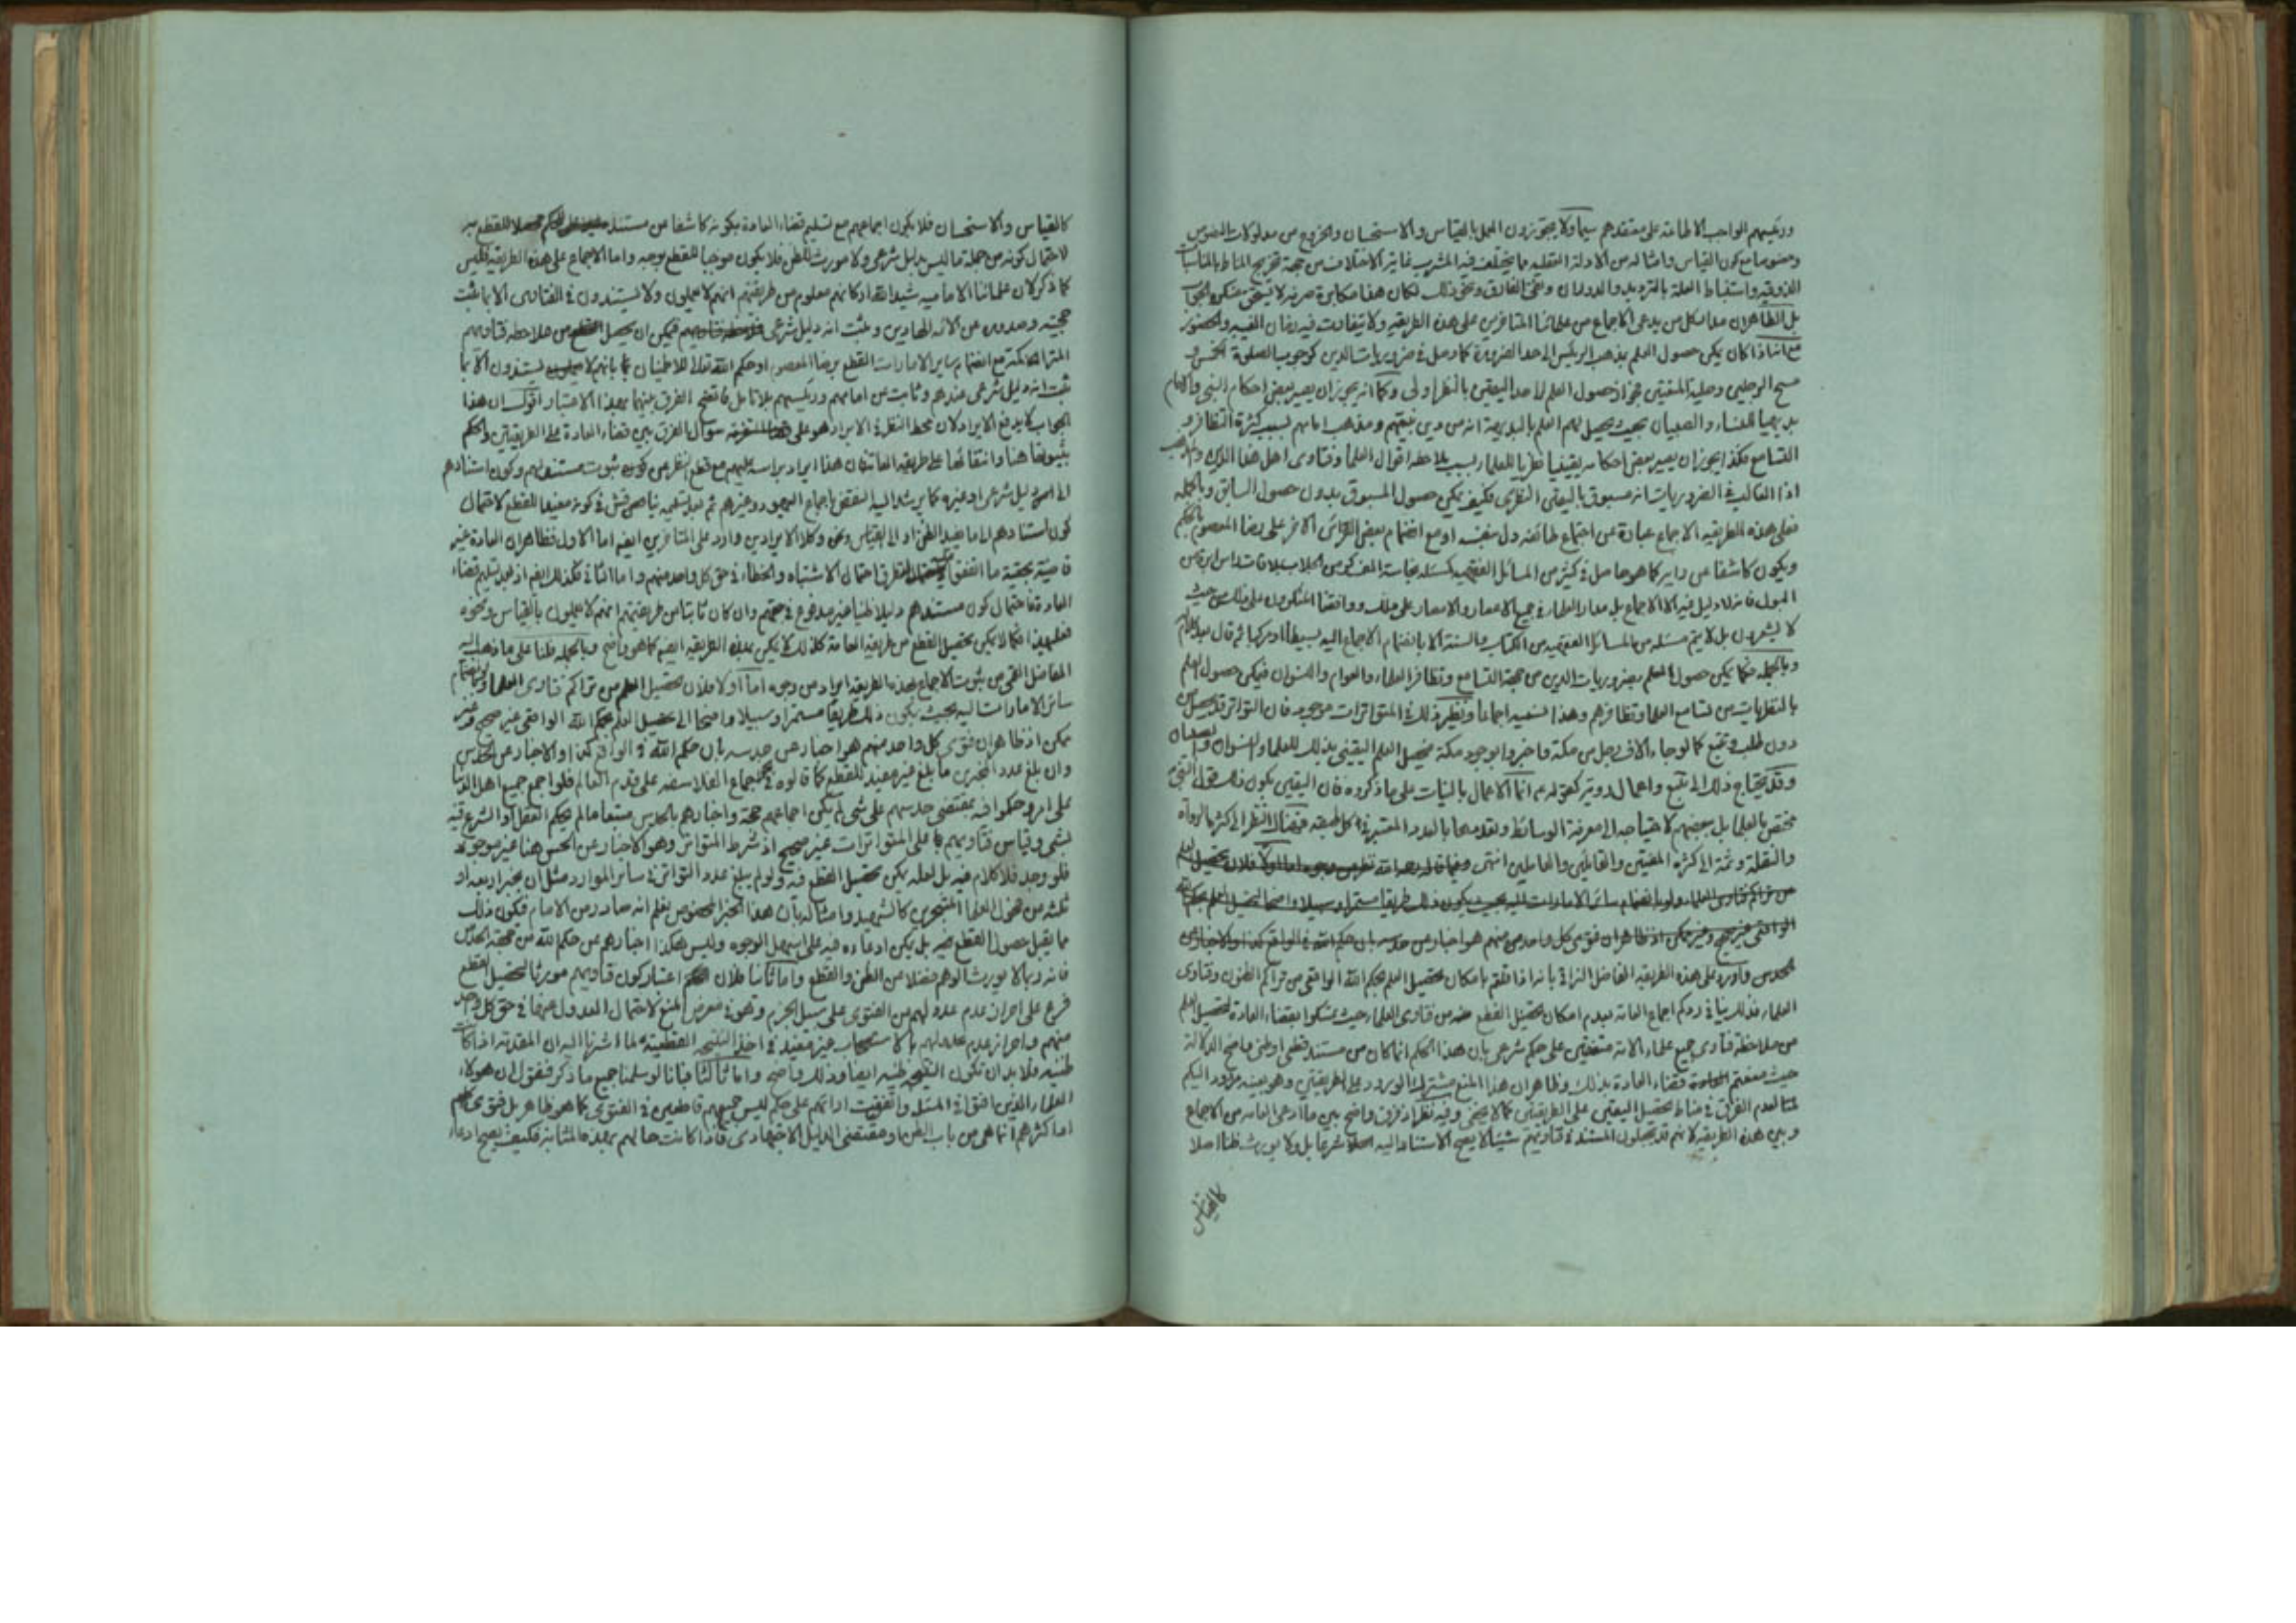 ورئيسهم الواجب الاطاعة على معتقدهم سيما ولا يجوزون العمل بالقياس والاستحسان والخروج من مدلولات النصوص
وخصوصا مع كون القياس وامثاله من الادلة العقلية مما يختلف فيه المشرب غاية الاختلاف من جهة تخريج المناط بالمناسبات
الذوقية واستنباط العلة بالترديد والدوران ونفي الفارق ونحو ذلك لكان هذا مكابرة صرفة لا يستحق منكره الجواب
بل الظاهر ان مدار كل من يدعي الاجماع من علمائنا المتأخرين على هذه الطريقة ولا يتفاوت فيه زمان الغيبة والحضور
مع انه اذا كان يمكن حصول العلم بمذهب الرئيس الى حد الضرورة كما وصل في ضروريات الدين كوجوب الصلوة الخمس و
مسح الرجلين وحلية المتعتين فجواز حصول العلم الى حد اليقين بالنظر اولى وكما انه يجوز ان يصير بعض احكام النبي والامام
بديهيا للنساء والصبيان بحيث يحصل لهم العلم بالبديهة انه من دين نبيهم ومذهب امامهم بسبب كثرة التظافر و
التسامع فكذا يجوز ان يصير بعض احكامه يقينيا نظريا للعلماء بسبب ملاحظة اقوال العلماء وفتاوى اهل هذا الدين والمذهب
اذا الغالب في الضروريات انه مسبوق باليقين النظري فكيف يمكن حصول المسبوق بدون حصول السابق وبالجملة
فعلى هذه الطريقة الاجماع عبارة عن اجتماع طائفة دل بنفسه او مع انضمام بعض القرائن الاخر على رضا المعصوم بالحكم
ويكون كاشفا عن رايه كما هو حاصل في كثير من المسائل الفقهية كمسئلة نجاسة الف كر من الجلاب بملاقات راس ابرة من
البول فانه لا دليل فيه الا الاجماع بل مدار العلماء في جميع الاعصار والامصار على ذلك ووافقنا المنكرون على ذلك من حيث
لا يشعرون بل لا يتم مسئلة من المسائل الفقهية من الكتاب والسنة الا بانضمام الاجماع اليه بسيطا او مركبا ثم قال بعد كلام
وبالجملة فكما يمكن حصول العلم بضروريات الدين من جهة التسامع وتظافر العلماء والعوام والنسوان فيمكن حصول العلم
بالنظريات من تسامع العلماء وتظافرهم وهذا نسميه اجماعا ونظير ذلك في المتواترات موجود فان التواتر قد يحصل
دون طلب وتتبع كما لو جاء الاف رجل من مكة واخبروا بوجود مكة فيحصل العلم اليقيني بذلك للعلماء والنسوان والصبيان
وقد يحتاج ذلك الى تتبع واعمال روية كقوله ع انما الاعمال بالنيات على ما ذكروه فان اليقين بكون ذلك قول النبي
مختص بالعلماء بل ببعضهم لاحتياجه الى معرفة الوسائط وتعددها بالعدد المعتبر في كل طبقة فهناك النظر الى كثرة الرواة
والنقلة وثمة الى كثرة المفتين والقائلين والعاملين انتهى وفيما قاله رحمه الله نظر من وجوه اما اولا فلان تحصيل العلم
من تراكم فتاوى العلماء ولو بانضمام سائر الامارات اليه بحيث يكون ذلك طريقا مستمرا وسبيلا واضحا لتحصيل العلم بحكم الله
الواقعي غير صحيح وغير ممكن اذ ظاهر ان فتوى كل واحد منهم هو اخبار من حدسه بان حكم الله في الواقع كذا والاخبار عن
الحدس واورد على هذه الطريقة الفاضل النراقي بانه اذا قلتم بامكان تحصيل العلم بحكم الله الواقعي من تراكم الظنون وفتاوى
العلماء فذلك ينافي ردكم اجماع العامة بعدم امكان تحصيل القطع من فتاوى العلماء حيث تمسكوا بقضاء العادة لتحصيل العلم
من ملاحظة فتاوى جميع علماء الامة متفقين على حكم شرعي بان هذا الحكم انما كان من مستند قطعي او ظني واضح الدلالة
حيث منعتم قضاء العادة بذلك وظاهر ان هذا المنع مشترك الورود على الطريقتين وهو بعينه مردود اليكم
لعدم الفرق في مناط تحصيل اليقين على الطريقتين كما لا يخفى وفيه نظر اذ فرق واضح بين ما ادعى العامة من الاجماع
وبين هذه الطريقة لانهم قد يجعلون المستند في فتاويهم شيئا لا يصح الاستناد اليه شرعا بل ولا يورث ظنا اصلا
كالقياس
كالقياس والاستحسان فلا يكون اجماعهم مع تسليم قضاء العادة بكونه كاشفا من مستند للقطع به
لاحتمال كونه من جملة ما ليس بدليل شرعي ولا مورث للظن فلا يكون موجبا للقطع بوجه واما الاجماع على هذه الطريقة فليس
كما ذكر لان علمائنا الامامية شيد الله اركانهم معلوم من طريقتهم انهم لا يعملون ولا يستندون في الفتاوى الا بما ثبت
حجيته وصدوره عن الائمة الهادين وثبت انه دليل شرعي فيمكن ان يحصل القطع من ملاحظة فتاويهم
المتراكمة مع انضمام ساير الامارات القطع برضا المعصوم او حكم الله تعالى للاطمينان بانهم لا يستندون الا بما
ثبت انه دليل شرعي عندهم وثابت من امامهم ورئيسهم بلا تامل فاتضح الفرق بينهما بهذا الاعتبار اقول ان هذا
الجواب لا يدفع الايراد لان محط النظر في الايراد هو على سؤال الفرق بين قضاء العادة على الطريقتين والحكم
بثبوتها هنا وانتفائها على طريقة العامة فان هذا ايراد براسه عليهم مع قطع النظر من كون ثبوت مستند لهم وكون استنادهم
الى امر دليل شرعي او غيره كما يرشد اليه النقض باجماع اليهود وغيرهم ثم بعد تسليمه يناقش في كونه مفيدا للقطع لاحتمال
كون استنادهم الى ما يفيد الظن او الى القياس ونحوه وكلا الايرادين وارد على المتاخرين ايضا اما الاول فظاهر ان العادة غير
قاضية بحقية ما اتفق عليه لتطرق احتمال الاشتباه والخطاء في حق كل واحد منهم واما الثاني فكذلك ايضا اذ بعد تسليم قضاء
العادة فاحتمال كون مستندهم دليلا ظنيا غير مدفوع في حقهم وان كان ثابتا من طريقتهم انهم لا يعملون بالقياس ونحوه
فعلى هذا فكما لا يمكن تحصيل القطع من طريقة العامة كذلك لا يمكن بهذه الطريقة ايضا كما هو واضح وبالجملة فلنا على ما ذهب اليه
الفاضل القمي من ثبوت الاجماع بهذه الطريقة ايراد من وجوه اما اولا فلان تحصيل العلم من تراكم فتاوى العلماء ولو بانضمام
سائر الامارات اليه بحيث يكون ذلك طريقا مستمرا وسبيلا واضحا الى تحصيل العلم بحكم الله الواقعي غير صحيح وغير
ممكن اذ ظاهر ان فتوى كل واحد منهم هو اخبار من حدسه بان حكم الله في الواقع كذا والاخبار عن الحدس
وان بلغ عدد المخبرين ما بلغ غير مفيد للقطع كما قالوه في اجماع الفلاسفة على قدم العالم فلو اجمع جميع اهل الدنيا
على امر وحكموا فيه بمقتضى حدسهم على شئ لم يكن اجماعهم حجة واخبارهم بالحدس متبعا ما لم يحكم العقل او الشرع فيه
بشئ وقياس فتاويهم على المتواترات غير صحيح اذ شرط المتواتر وهو الاخبار عن الحس هنا غير موجود
فلو وجد فلا كلام فيه بل لعله يمكن تحصيل القطع فيه ولو لم يبلغ عدد التواتر في سائر الموارد مثل ان يخبر اربعة او
ثلثة من فحول العلماء المتبحرين كالشهيد وامثاله بان هذا الخبر المخصوص نعلم انه صادر من الامام فيكون ذلك
مما يقبل حصول القطع فيه بل يمكن ادعاءه فيه على اسهل الوجوه وليس هكذا اخبارهم عن حكم الله من جهة الحدس
فانه ربما لا يورث الوهم فضلا من الظن والقطع واما ثانيا فلان اعتبار كون فتاويهم مورثا لتحصيل القطع
فرع على احراز عدم عدولهم من الفتوى على سبيل الجزم وهو في معرض المنع لاحتمال العدول عنها في حق كل واحد
منهم واحراز عدم عدولهم بالاستصحاب غير مفيد في اخذ النتيجة القطعية لما اشرنا اليه ان المقدمة اذا كانت
ظنية فلا بد ان تكون النتيجة ظنية ايضا وذلك واضح واما ثالثا فبانا لو سلمنا جميع ما ذكر فنقول ان هولاء
العلماء الذين افتوا في المسئلة واتفقت ارائهم على حكم ليس جميعهم قاطعين في الفتوى كما هو ظاهر بل فتوى كلهم
او اكثرهم انما هي من باب الظن او مقتضى الدليل الاجتهادي فاذا كانت حالهم بهذه المثابة فكيف يصح ادعاء